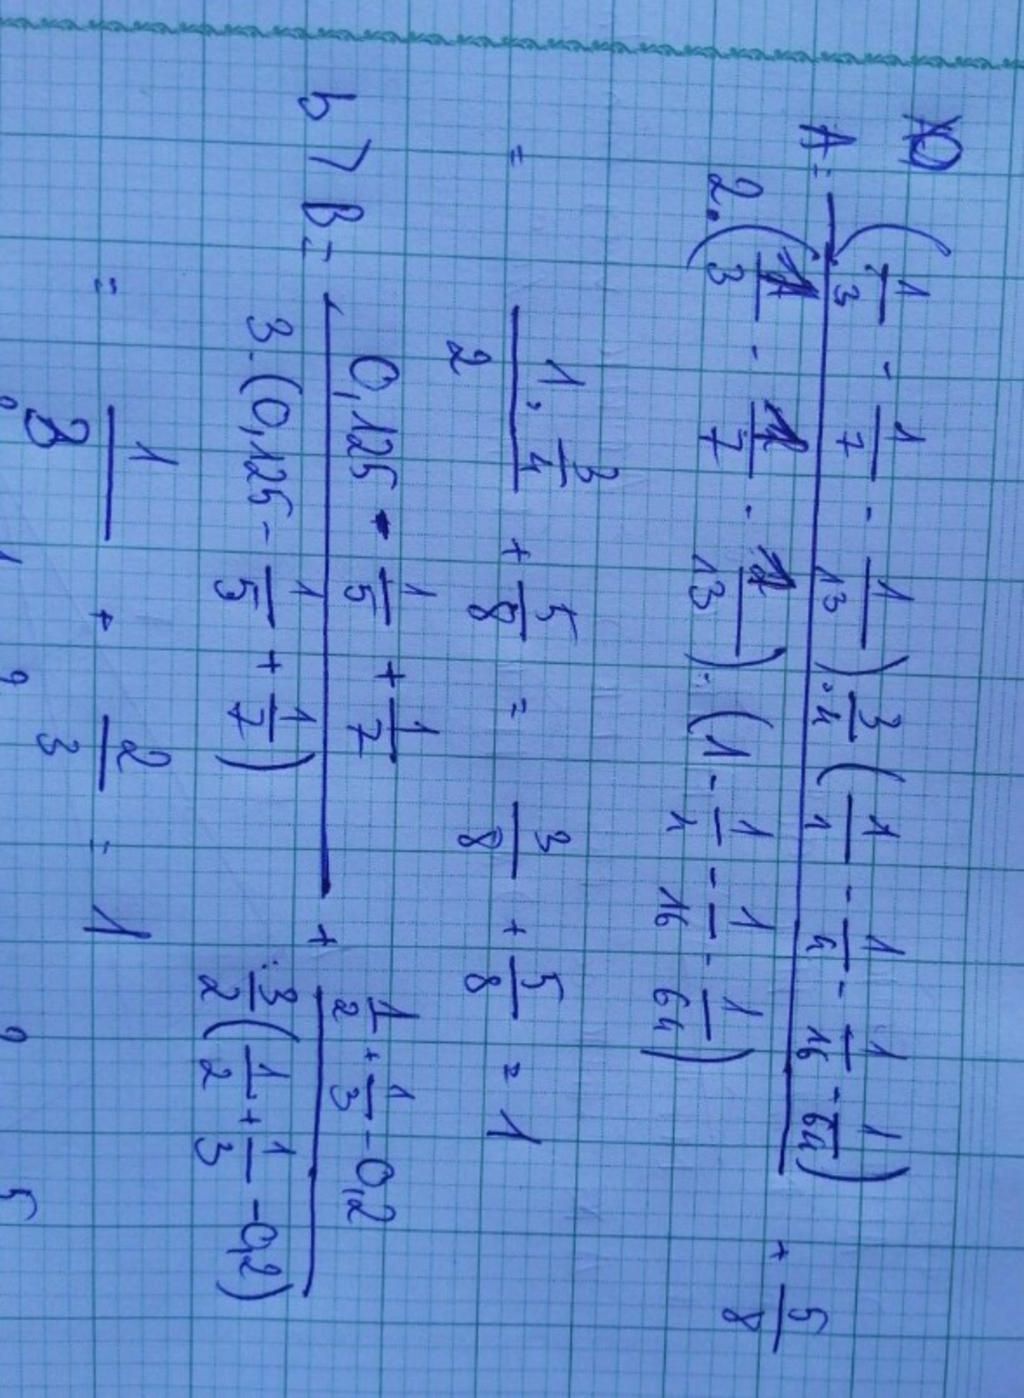 A = ((1/3 - 1/7 - 1/13) . 3/4 (1/1 - 1/4 - 1/16 - 1/64)) / (2.(1/3 - 1/7 - 1/13) . (1 - 1/4 - 1/16 - 1/64)) + 5/8
= (1 . 3/4) / 2 + 5/8 = 3/8 + 5/8 = 1
b) B = (0,125 - 1/5 + 1/7) / (3.(0,125 - 1/5 + 1/7)) + (1/2 + 1/3 - 0,2) / (3/2 (1/2 + 1/3 - 0,2))
= 1/3 + 2/3 = 1